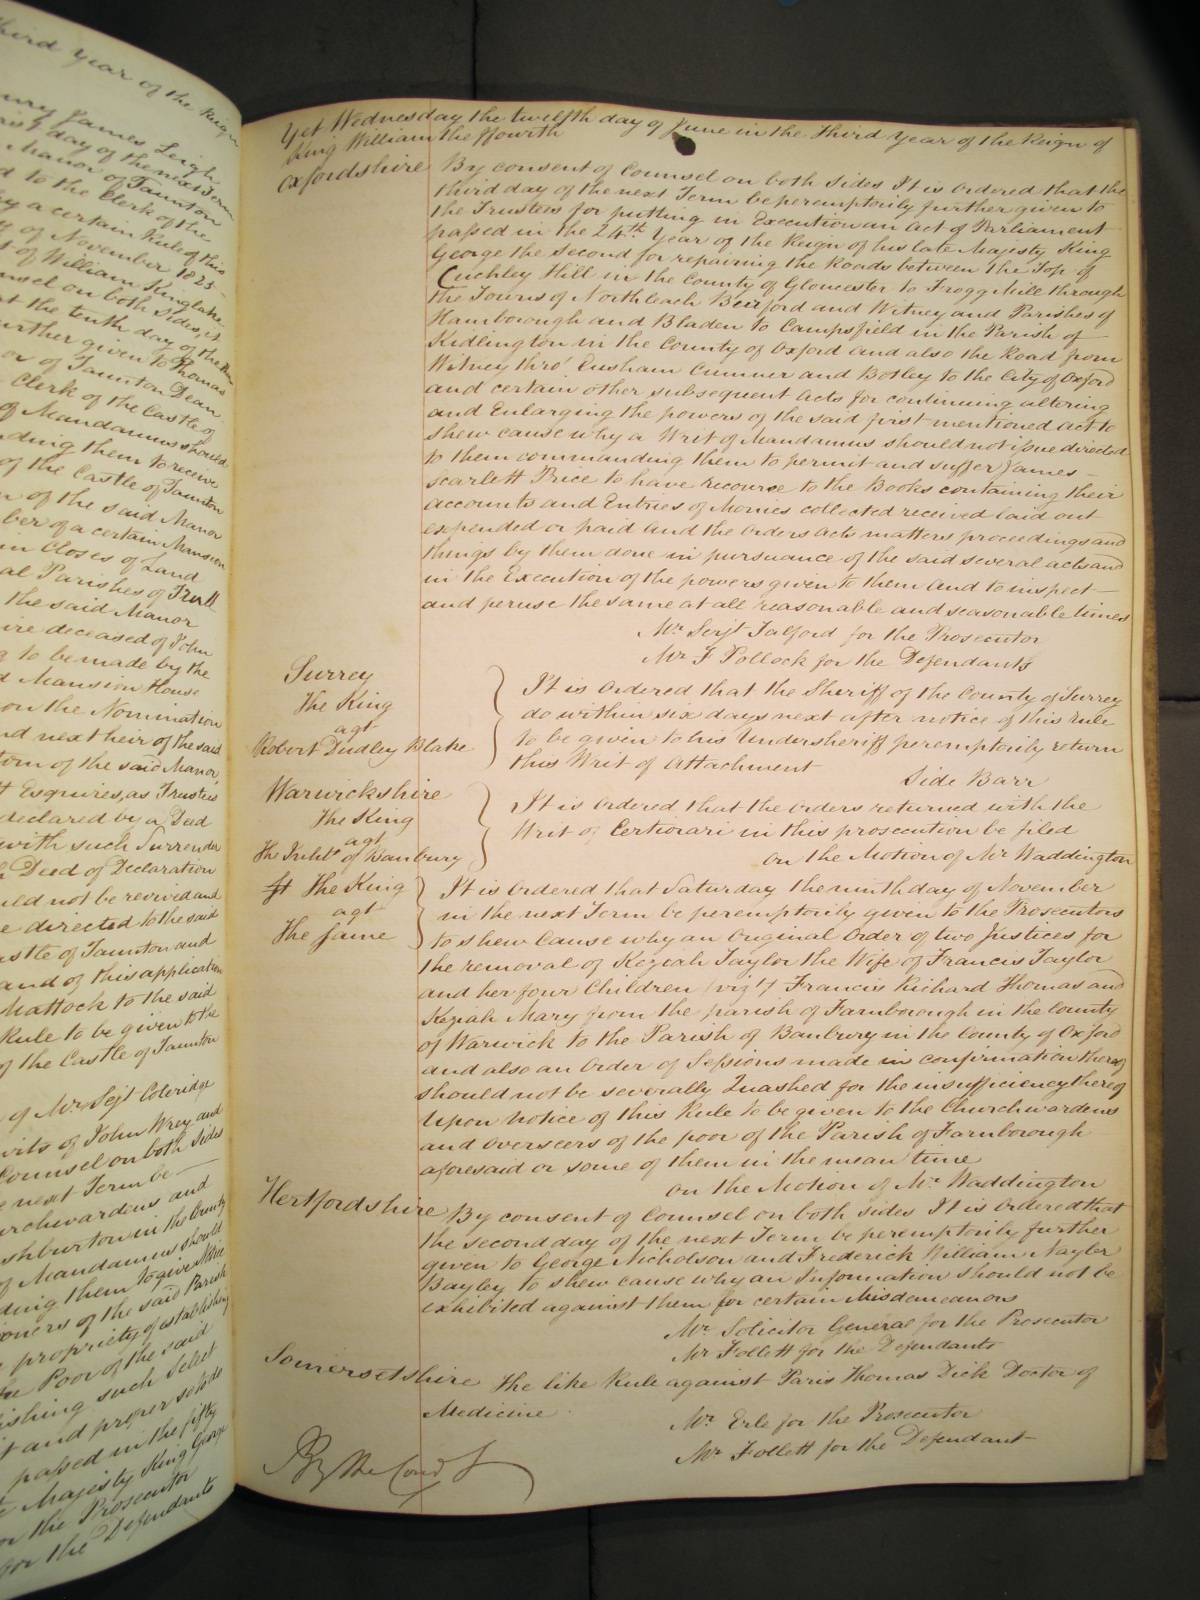 third year of the Reign
ury James Leigh
rst day of the next Term
Manor of Taunton
d to the Clerk of the
by a certain Rule of this
of November 1825
t of William Kinglake
nsel on both sides it
at the tenth day of the
further given to Thomas
or of Taunton Dean
Clerk of the Castle of
of Mandamus should
nding them to receive
of the Castle of Taunton
n of the said Manor
ber of a certain Mansion
in Closes of Land
al Parishes of Trull
the said Manor
ire deceased of John
g to be made by the
d Mansion House
on the Nomination
nd next heir of the said
tom of the said Manor
tt Esquires, as Trustees
declared by a Deed
with such Surrender
Deed of Declaration
uld not be revived and
e directed to the said
astle of Taunton and
and of this application
Mattock to the said
Rule to be given to the
of the Castle of Taunton
of Mr. Sejt Coleridge
vits of John Wrey and
Counsel on both sides
e next Term be
urchwardens and
shburton in the County
of Mandamus should
ding them to give Notice
ioners of the said Parish
propriety of establishing
the Poor of the said
lishing such Select
t and proper so to do
passed in the fifty
Majesty King George
or the Prosecutor
for the Defendants
Yet Wednesday the twelfth day of June in the third year of the Reign of
King William the ffourth
Oxfordshire By consent of Counsel on both sides It is ordered that the
third day of the next Term be peremptorily further given to
the Trustees for putting in Execution an act of Parliament
passed in the 24th Year of the Reign of his late Majesty King
George the Second for repairing the Roads between the Top of
Cuchley Hill in the County of Gloucester to Frogg Mill through
the Towns of Northleach Burford and Witney and Parishes of
Hamborough and Bladen to Campsfield in the Parish of
Kidlington in the County of Oxford and also the Road from
Witney thro' Ensham Cumner and Botley to the City of Oxford
and certain other subsequent Acts for continuing altering
and Enlarging the powers of the said first mentioned act to
shew cause why a Writ of Mandamus should not issue directed
to them commanding them to permit and suffer James
Scarlett Price to have recourse to the Books containing their
accounts and Entries of Monies collected received laid out
expended or paid and the orders acts matters proceedings and
things by them done in pursuance of the said several acts and
in the Execution of the powers given to them and to inspect
and peruse the same at all reasonable and seasonable times
Mr. Serjt Talford for the Prosecutor
Mr F Pollock for the Defendants
Surrey
The King
agt
Robert Dudley Blake
It is ordered that the Sheriff of the County of Surrey
do within six days next after notice of this rule
to be given to his Undersheriff peremptorily return
this Writ of Attachment
Side Barr
Warwickshire
The King
agt
The Inhbts of Banbury
It is ordered that the orders returned with the
Writ of Certiorari in this prosecution be filed
On the Motion of Mr Waddington
St The King
agt
The Same
It is ordered that Saturday the ninth day of November
in the next Term be peremptorily given to the Prosecutors
to shew Cause why an Original Order of two Justices for
the removal of Keziah Taylor the Wife of Francis Taylor
and her four Children (vizt) Francis Richard Thomas and
Keziah Mary from the parish of Farnborough in the County
of Warwick to the Parish of Banbury in the County of Oxford
and also an Order of Sessions made in confirmation thereof
should not be severally Quashed for the insufficiency thereof
Upon notice of this Rule to be given to the Churchwardens
and overseers of the poor of the Parish of Farnborough
aforesaid or some of them in the mean time
On the Motion of Mr. Waddington
Hertfordshire By consent of Counsel on both sides It is ordered that
the second day of the next Term be peremptorily further
given to George Nicholson and Frederick William Nayler
Bayley to shew cause why an Information should not be
exhibited against them for certain Misdemeanors
Mr. Solicitor General for the Prosecutor
Mr Follett for the Defendants
Somersetshire The like Rule against Paris Thomas Dick Doctor of
Medicine
Mr. Erle for the Prosecutor
Mr Follett for the Defendant
By the Court